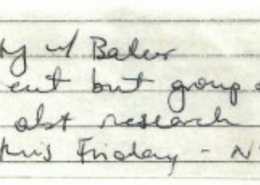 w/ Baker
but group
abt research
this Friday - N